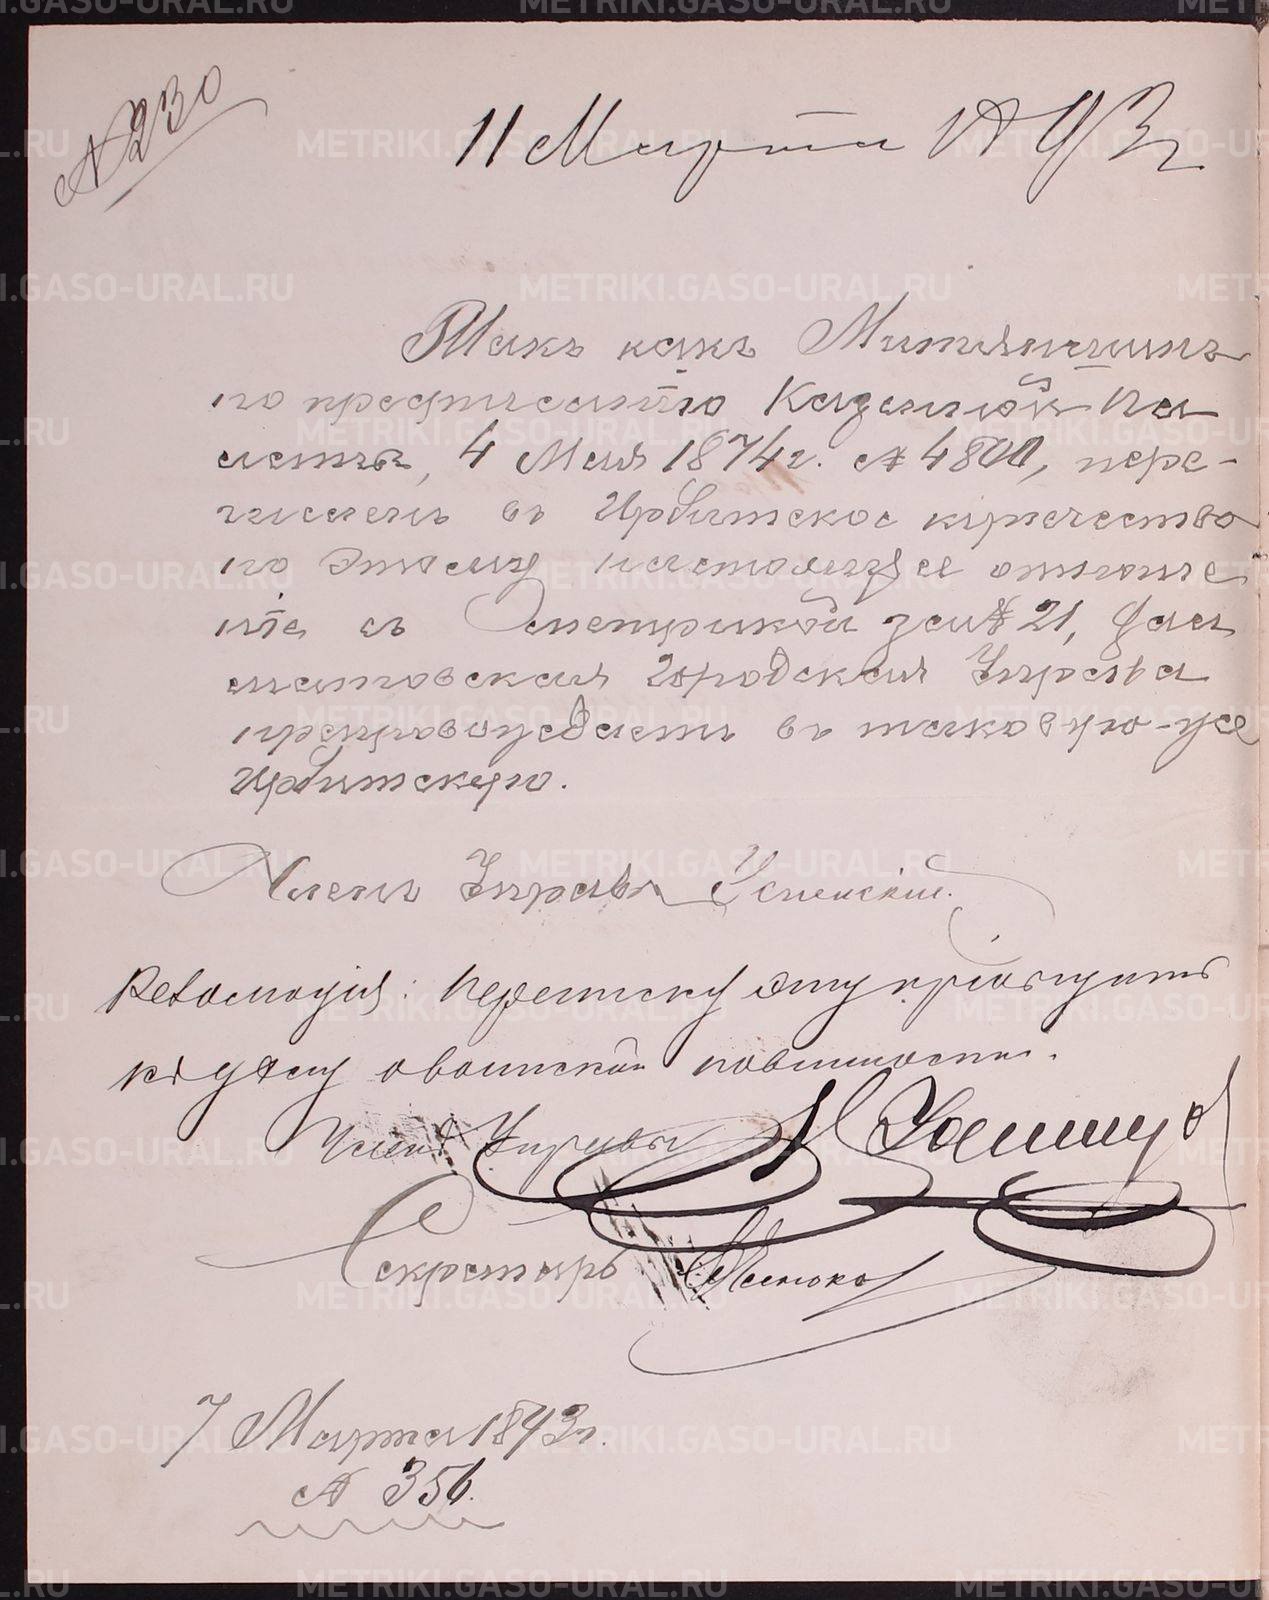 № 230
11 Марта 1893 г
Такъ какъ
по предписанію Казенной Па
латы, 4 Мая 1874 г. № 4800, пере-
численъ въ Ирбитское купечество
то Этому настоящее отноше
ніе съ Метрикой за № 21,
Городская Управа
препровождаетъ въ таковую-же
Ирбитскую.
Членъ Управы Успенскій.
Резолюція: Переписку эту пріобщить
къ делу о воинской повинности.
Членъ Управы
Секретарь
7 Марта 1893 г.
№ 356.
METRIKI.GASO-URAL.RU